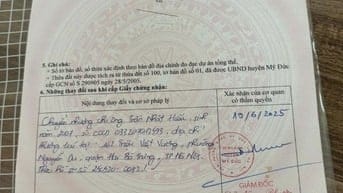 5. Ghi chú:
- Số tờ bản đồ, số thửa xác định theo bản đồ địa chính đo đạc dự án tổng thể.
- Thửa đất này được tách ra từ thửa đất số 100, tờ bản đồ số 01, đã được UBND huyện Mỹ Đức
cấp GCN số S 290905 ngày 28/5/2005.
6. Những thay đổi sau khi cấp Giấy chứng nhận:
Nội dung thay đổi và cơ sở pháp lý
Xác nhận của cơ quan
có thẩm quyền
Chuyển nhượng cho ông Trần Nhật
sinh
năm 2001, CCCD
địa chỉ
thường trú tại:
Trần Việt Vương, phường
Nguyễn Du, quận Hai Bà Trưng, TP Hà Nội.
10/6/2025
GIÁM ĐỐC